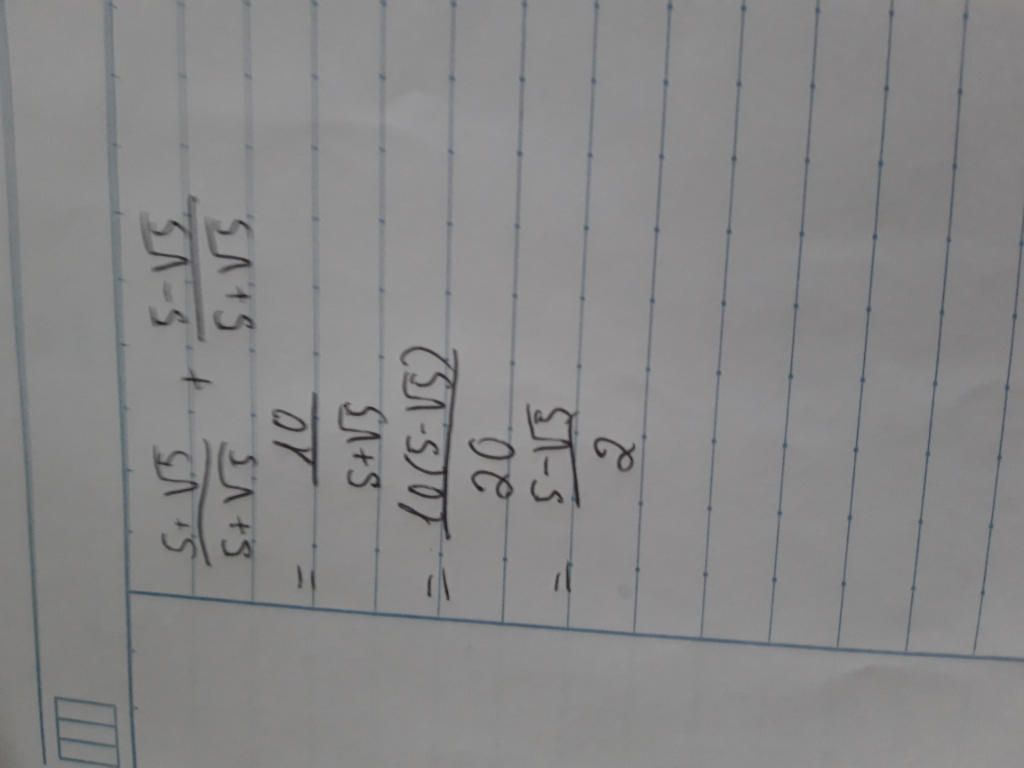 5+√5/5+√5 + 5-√5/5+√5
= 10/5+√5
= 10(5-√5)/20
= 5-√5/2